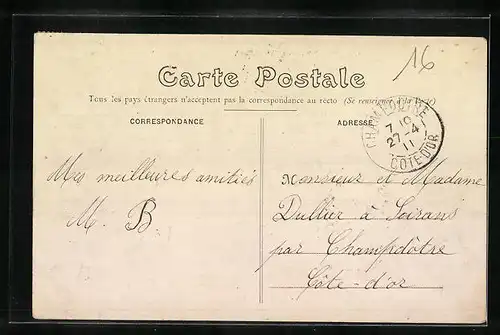 16
Carte Postale
Tous les pays étrangers n'acceptent pas la correspondance au recto (Se renseigner à la Poste)
CORRESPONDANCE
ADRESSE
CHAMPDOTRE
7 19
27-4
11
COTE D'OR
Mes meilleures amitiés
M. B.
Monsieur et Madame
Dullier à Soirans
par Champdôtre
Côte-d'or